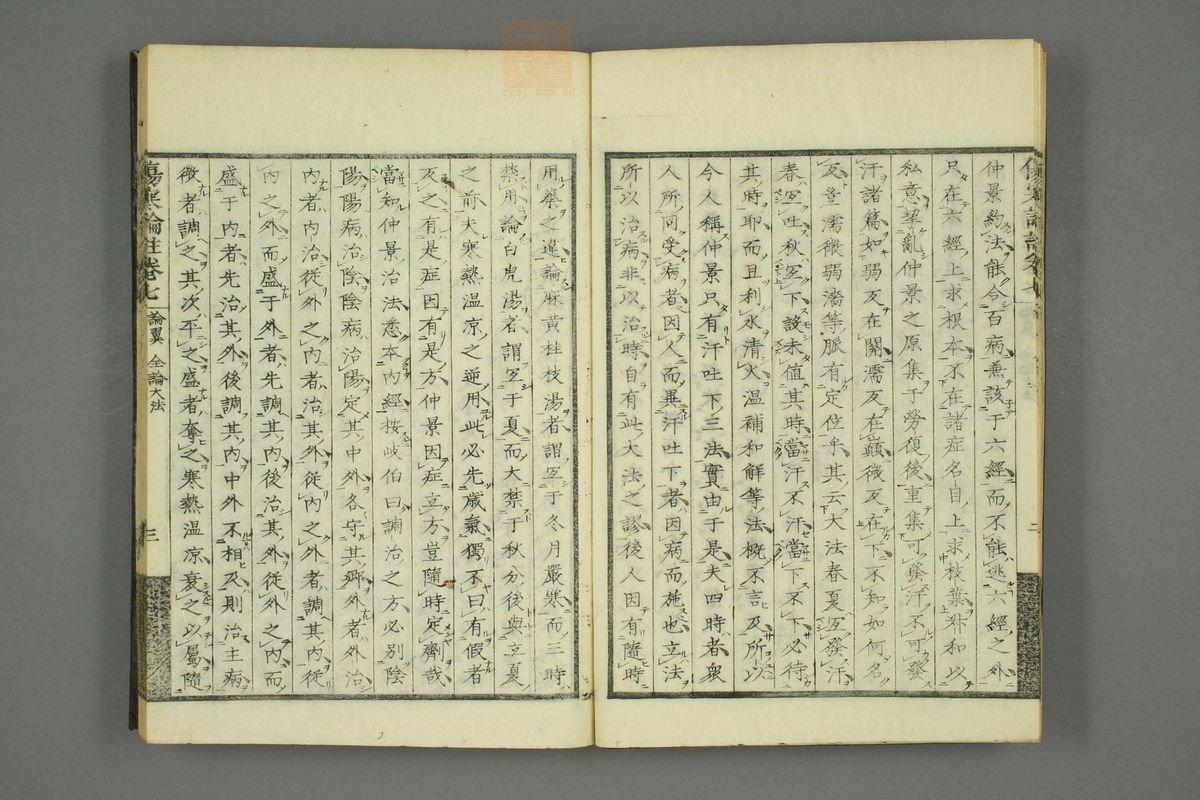 仲景約法能合百病兼該于六經而不能逃六經之外
只在六經上求根本不在諸症名目上求枝葉叔和以
私意挈亂仲景之原集于勞復後重集可發汗不可發
汗諸篇如弱反在關濡反在巔微反在下不知如何名
反豈濡微弱濇等脈有定位乎其云大法春夏宜發汗
春宜吐秋宜下設未值其時當汗不汗當下不下必待
其時耶而且利水清火温補和解等法概不言及所以
今人稱仲景只有汗吐下三法實由于是夫四時者衆
人所同受病者因人而異汗吐下者因病而施也立法
所以治病非以治時自有此大法之謬後人因有隨時
用藥之違論麻黄桂枝湯者謂宜于冬月嚴寒而三時
禁用論白虎湯者謂宜于夏而大禁于秋分後與立夏
之前夫寒熱温凉之逆用此必先歲氣獨不曰有假者
反之有是症因有是方仲景因症立方豈隨時定劑哉
當知仲景治法悉本内經按岐伯曰調治之方必别陰
陽陽病治陰陰病治陽定其中外各守其郷外者外治
内者内治從外之内者治其外從内之外者調其内從
内之外而盛于外者先調其内後治其外從外之内而
盛于内者先治其外後調其内中外不相及則治主病
微者調之其次平之盛者奪之寒熱温凉衰之以屬隨
傷寒論註卷七 論翼 全論大法 三
zysj.com.cn